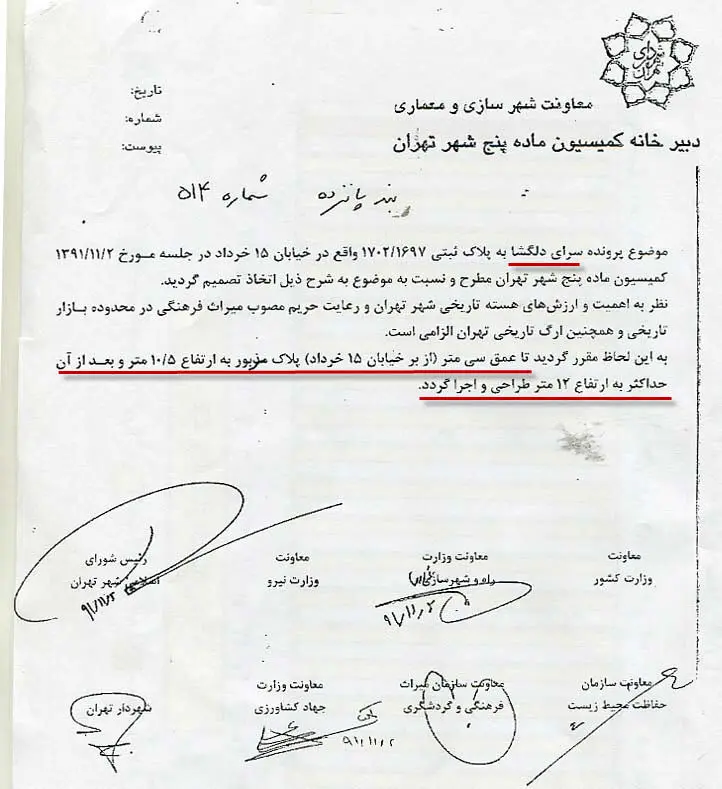 شهرداری تهران
معاونت شهر سازی و معماری
دبیر خانه کمیسیون ماده پنج شهر تهران
تاریخ:
شماره:
پیوست:
بند پانزده شماره ۵۱۴
موضوع پرونده سرای دلگشا به پلاک ثبتی ۱۷۰۲/۱۶۹۷ واقع در خیابان ۱۵ خرداد در جلسه مورخ ۱۳۹۱/۱۱/۲
کمیسیون ماده پنج شهر تهران مطرح و نسبت به موضوع به شرح ذیل اتخاذ تصمیم گردید.
نظر به اهمیت و ارزش‌های هسته تاریخی شهر تهران و رعایت حریم مصوب میراث فرهنگی در محدوده بازار
تاریخی و همچنین ارگ تاریخی تهران الزامی است.
به این لحاظ مقرر گردید تا عمق سی متر (از بر خیابان ۱۵ خرداد) پلاک مزبور به ارتفاع ۱۰/۵ متر و بعد از آن
حداکثر به ارتفاع ۱۲ متر طراحی و اجرا گردد.
معاونت
وزارت کشور
معاونت وزارت
راه و شهرسازی
۹۱/۱۱/۲
معاونت
وزارت نیرو
رئیس شورای
اسلامی شهر تهران
۹۱/۱۱/۲
معاونت سازمان
حفاظت محیط زیست
معاونت سازمان میراث
فرهنگی و گردشگری
معاونت وزارت
جهاد کشاورزی
۹۱/۱۱/۲
شهردار تهران